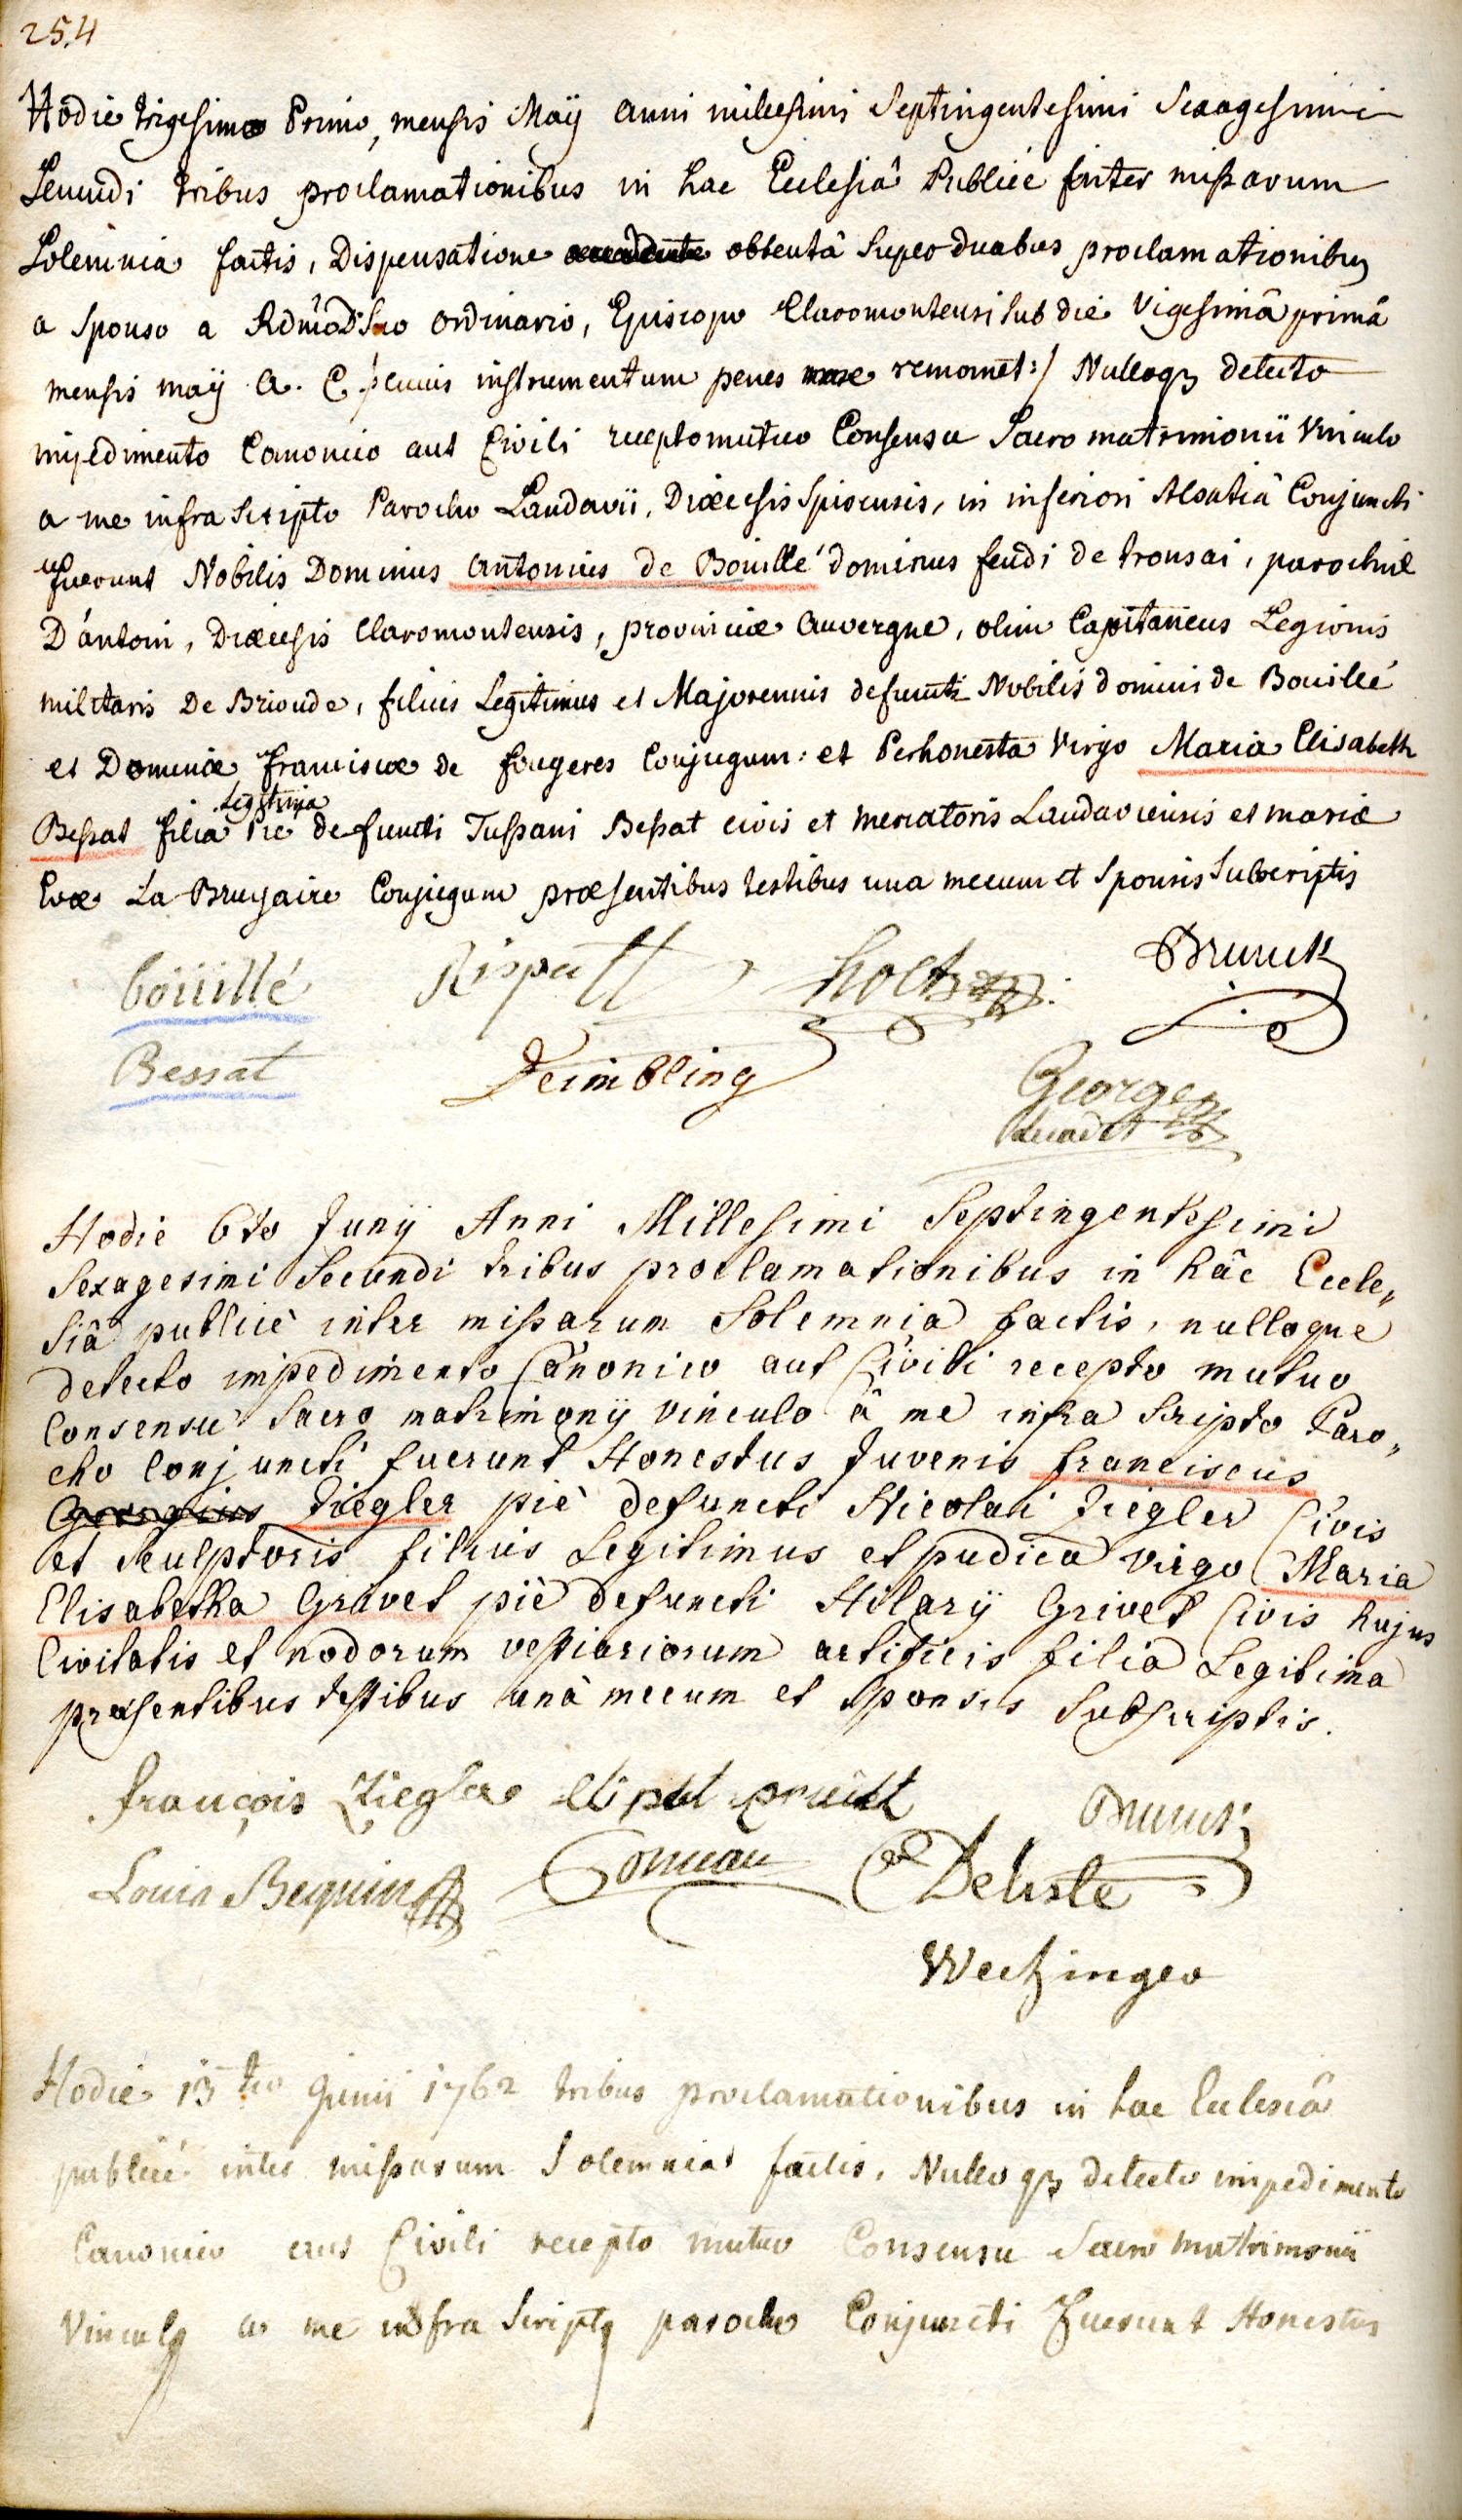 254
Hodie trigesimo Primo, mensis Maÿ anni millesimi Septingentesimi Sexagesimi
Secundi tribus proclamationibus in hac Ecclesiâ Publicè inter missarum
Solemnia factis, Dispensatione obtentâ super duabus proclamationibus
a sponso a Rdmo D. Suo ordinario, Episcopo Claromontensi sub die Vigesimâ primâ
mensis maÿ a. C. penes instrumentum penes me remanet:/ Nulloq3 detecto
impedimento Canonico aut Civili recepto mutuo Consensu Sacro matrimonii Vinculo
a me infra scripto Parocho Landavii, Diœcesis Spirensis, in inferiori Alsatiâ Conjuncti
fuerunt Nobilis Dominus Antonius de Bouillé dominus feudi de tronsai, parochiæ
D'antoin, Diœcesis Claromontensis, provinciæ auvergne, olim Capitaneus Legionis
militaris De Brioude, filius Legitimus et Majorennis defuncti Nobilis domini de Bouillé
et Dominæ Franciscæ de fougeres Conjugum: et Perhonesta Virgo Maria Elisabeth
Bessat filia Legitima Piè defuncti Tussani Bessat civis et mercatoris Landaviensis et mariæ
Evæ La Brugaire Conjugum præsentibus testibus una mecum et Sponsis Subscriptis
boüillé Rispatt holtz Brunck
Bessat Deimbling George
Quadet
Hodie 6to Junÿ Anni Millesimi Septingentesimi
Sexagesimi Secundi tribus proclamationibus in hâc Eccle„
siâ publicè inter missarum Solemnia factis, nulloque
detecto impedimento Canonico aut Civili recepto mutuo
Consensu Sacro matrimonÿ vinculo â me infra Scripto Paro„
cho Conjuncti fuerunt Honestus Juvenis franciscus
Georgius Ziegler piè defuncti Nicolai Ziegler Civis
et Sculptoris filius Legitimus et pudica virgo Maria
Elisabetha Gravet piè defuncti Hilarÿ Grivet Civis hujus
Civitatis et nodorum vestiariorum artificis filia Legitima
præsentibus testibus unâ mecum et Sponsis Subscriptis.
françois Ziegler Brunck
Louis Bequin Comeau Deliste
Wechinger
Hodie 13tio Junii 1762 tribus proclamationibus in hac Ecclesiâ
publicè inter missarum Solemnia factis, Nulloq3 detecto impedimento
Canonico aut Civili recepto mutuo Consensu Sacro matrimonii
Vinculo a me infra Scripto parocho Conjuncti Fuerunt Honestus